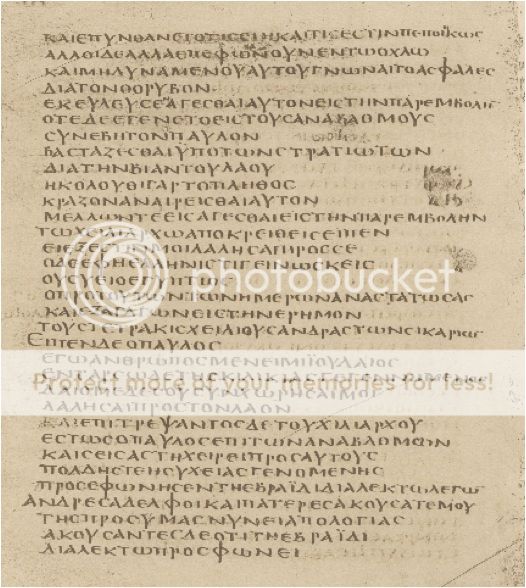 ΚΑΙΕΠΥΝΘΑΝΕΤΟΤΙϹΕΙΗΚΑΙΤΙϹΕϹΤΙΝΠΕΠΟΙΚΩϹ
ΑΛΛΟΙΔΕΑΛΛΑΕΠΕΦΩΝΟΥΝΕΝΤΩΟΧΛΩ
ΚΑΙΜΗΔΥΝΑΜΕΝΟΥΑΥΤΟΥΓΝΩΝΑΙΤΟΑϹΦΑΛΕϹ
ΔΙΑΤΟΝΘΟΡΥΒΟΝ
ΕΚΕΛΕΥϹΕΑΓΕϹΘΑΙΑΥΤΟΝΕΙϹΤΗΝΠΑΡΕΜΒΟΛΗ
ΟΤΕΔΕΕΓΕΝΕΤΟΕΙϹΤΟΥϹΑΝΑΒΑΘΜΟΥϹ
ϹΥΝΕΒΗΤΟΝΠΑΥΛΟΝ
ΒΑϹΤΑΖΕϹΘΑΙΫΠΟΤΩΝϹΤΡΑΤΙΩΤΩΝ
ΔΙΑΤΗΝΒΙΑΝΤΟΥΛΑΟΥ
ΗΚΟΛΟΥΘΙΓΑΡΤΟΠΛΗΘΟϹ
ΚΡΑΖΟΝΑΝΑΙΡΕΙϹΘΑΙΑΥΤΟΝ
ΜΕΛΛΩΝΤΕΕΙϹΑΓΕϹΘΑΙΕΙϹΤΗΝΠΑΡΕΜΒΟΛΗΝ
ΤΩΧΕΙΛΙΑΡΧΩΑΠΟΚΡΕΙΘΕΙϹΕΙΠΕΝ
ΕΙΕΞΕϹΤΙΝΜΟΙΛΑΛΗϹΑΙΠΡΟϹϹΕ
ΟΔΕΕΦΗΕΛΛΗΝΙϹΤΙΓΕΙΝΩϹΚΕΙϹ
photobucket
ΟΠΡΟΤΟΥΤΩΝΤΩΝΗΜΕΡΩΝΑΝΑϹΤΑΤΩϹΑϹ
ΚΑΙΕΞΑΓΑΓΩΝΕΙϹΤΗΝΕΡΗΜΟΝ
ΤΟΥϹΤΕΤΡΑΚΙϹΧΕΙΛΙΟΥϹΑΝΔΡΑϹΤΩΝϹΙΚΑΡΙΩ
ΕΙΠΕΝΔΕΟΠΑΥΛΟϹ
ΕΓΩΑΝΘΡΩΠΟϹΜΕΝΕΙΜΙΪΟΥΔΑΙΟϹ
Protect more of your memories for less!
ΛΑΛΗϹΑΙΠΡΟϹΤΟΝΛΑΟΝ
ΚΑΙΕΠΙΤΡΕΨΑΝΤΟϹΔΕΤΟΥΧΙΛΙΑΡΧΟΥ
ΕϹΤΩϹΟΠΑΥΛΟϹΕΠΙΤΩΝΑΝΑΒΑΘΜΩΝ
ΚΑΙϹΕΙϹΑϹΤΗΧΕΙΡΕΙΠΡΟϹΑΥΤΟΥϹ
ΠΟΛΛΗϹΤΕΗϹΥΧΕΙΑϹΓΕΝΟΜΕΝΗϹ
ΠΡΟϹΕΦΩΝΗϹΕΝΤΗΕΒΡΑΪΔΙΔΙΑΛΕΚΤΩΛΕΓΩ
ΑΝΔΡΕϹΑΔΕΛΦΟΙΚΑΙΠΑΤΕΡΕϹΑΚΟΥϹΑΤΕΜΟΥ
ΤΗϹΠΡΟϹΥΜΑϹΝΥΝΕΙΑΠΟΛΟΓΙΑϹ
ΑΚΟΥϹΑΝΤΕϹΔΕΟΤΙΤΗΕΒΡΑΪΔΙ
ΔΙΑΛΕΚΤΩΠΡΟϹΦΩΝΕΙ